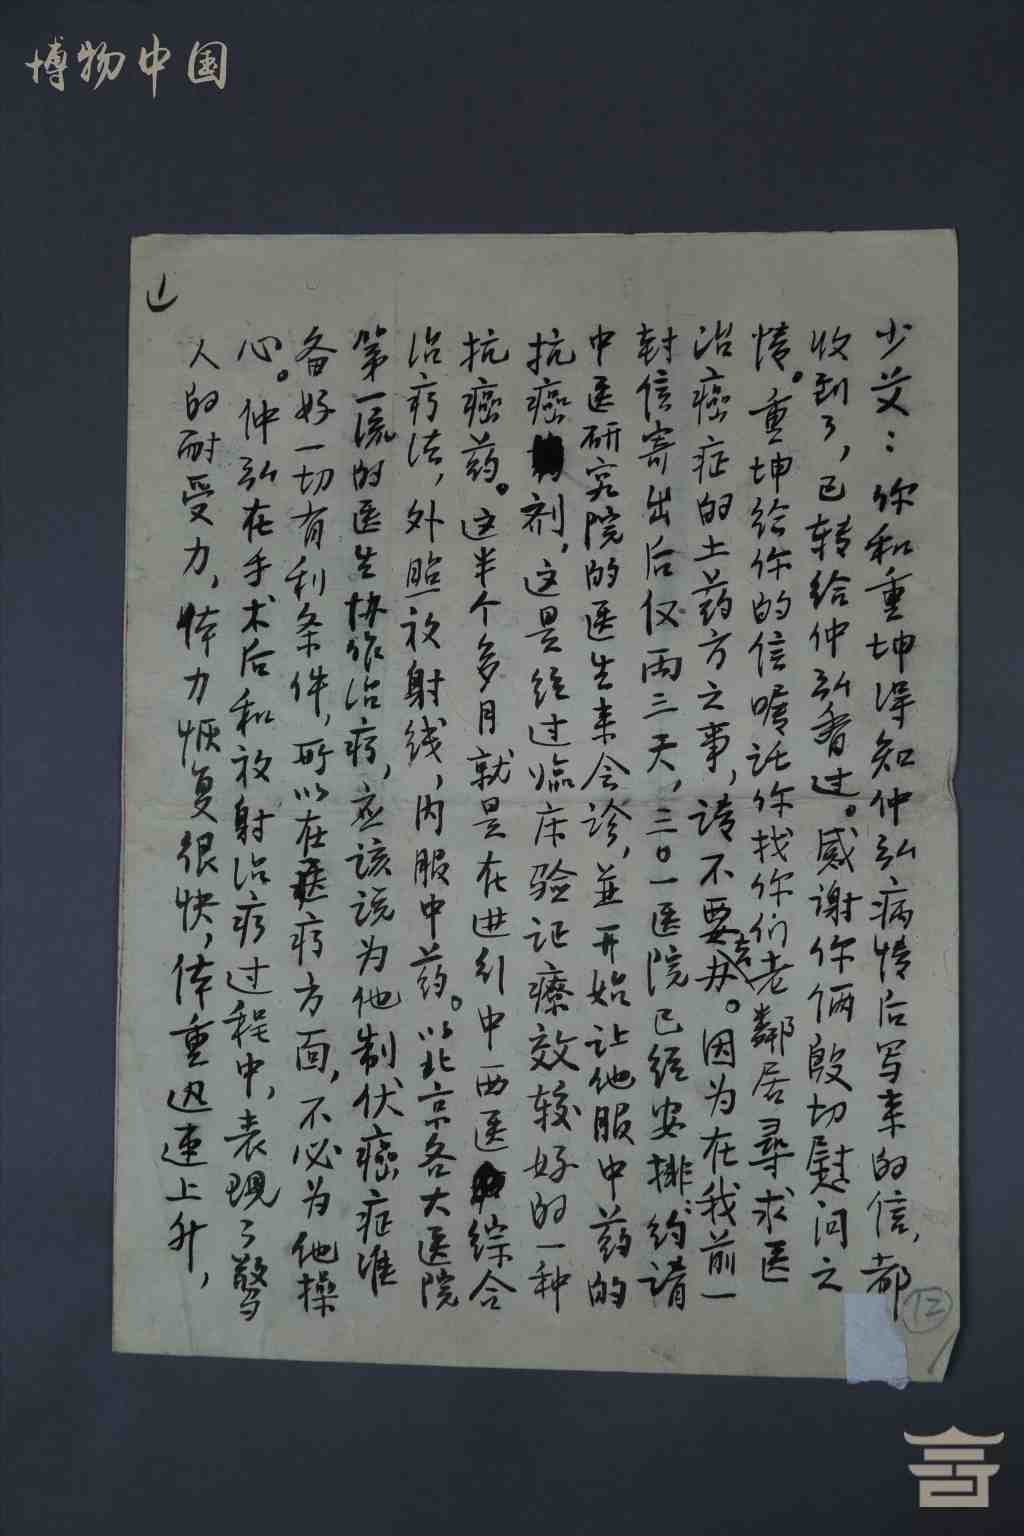 博物中国
1
少艾：你和重坤得知仲弘病情后写来的信，都
收到了，已转给仲弘看过。感谢你俩殷切慰问之
情。重坤给你的信嘱託你找你们老鄰居尋求医
治癌症的土药方之事，请不要去办。因为在我前一
封信寄出后仅两三天，三〇一医院已经安排：约请
中医研究院的医生来会诊，並开始让他服中药的
抗癌剂，这是经过临床验证療效较好的一种
抗癌药。这半个多月就是在进行中西医综合
治疗法，外照放射线，内服中药。以北京各大医院
第一流的医生协作治疗，应该说为他制伏癌症准
备好一切有利条件，所以在医疗方面，不必为他操
心。仲弘在手术后和放射治疗过程中，表现了驚
人的耐受力，体力恢复很快，体重迅速上升，